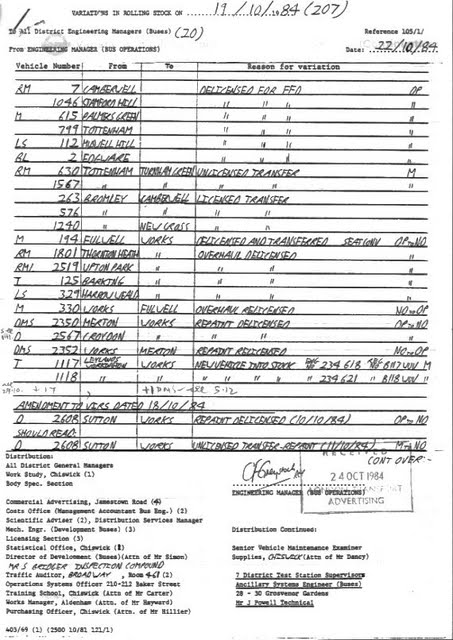 VARIATIONS IN ROLLING STOCK ON ... 19/10/984 (207)
To All District Engineering Managers (Buses) (20)
Reference 105/1/
From ENGINEERING MANAGER (BUS OPERATIONS)
Date: 22/10/84
Vehicle Number From To Reason for variation
RM 7 CAMBERWELL DELICENSED FOR FFD OP
1046 STAMFORD HILL " " " "
M 615 PALMERS GREEN " " " "
799 TOTTENHAM " " " "
LS 112 MUSWELL HILL " " " "
BL 2 EDGWARE " " " "
RM 630 TOTTENHAM TURNHAM GREEN UNLICENSED TRANSFER M
1567 " " " " "
263 BROMLEY CAMBERWELL LICENSED TRANSFER
576 " " " "
1240 " NEW CROSS " "
M 194 FULWELL WORKS DELICENSED AND TRANSFERRED SEAT CONV OP→NO
RM 1801 THORNTON HEATH " OVERHAUL DELICENSED "
RML 2519 UPTON PARK " " " "
T 125 BARKING " " " "
LS 329 HARROW WEALD " " " "
M 330 WORKS FULWELL OVERHAUL RELICENSED NO→OP
DMS 2350 MERTON WORKS REPAINT DELICENSED OP→NO
D 2567 CROYDON " " " "
DMS 2352 WORKS MERTON REPAINT RELICENSED NO→OP
T 1117 LEYLANDS WORKINGTON WORKS NEW VEHICLE INTO STOCK 234 618 B117 UUV M
1118 " " " " " " 234 621 B118 UUV "
+1T
AMENDMENT TO VIRS DATED 18/10/84
D 2608 SUTTON WORKS REPAINT DELICENSED (10/10/84) OP→NO
SHOULD READ:
D 2608 SUTTON WORKS UNLICENSED TRANSFER - REPAINT (11/10/84) M→NO
CONT OVER:-
Distribution:
All District General Managers
Work Study, Chiswick (1)
Body Spec. Section
RECEIVED
24 OCT 1984
ADVERTISING
ENGINEERING MANAGER (BUS OPERATIONS)
Commercial Advertising, Jamestown Road (4)
Costs Office (Management Accountant Bus Eng.) (2)
Scientific Adviser (2), Distribution Services Manager
Mech. Engr. (Development Buses) (3)
Licensing Section (3)
Statistical Office, Chiswick (1)
Director of Development (Buses)(Attn of Mr Simon)
MR S BRIDGER INSPECTION COMPOUND
Traffic Auditor, BROADWAY, Room 467 (1)
Operations Systems Officer 210-212 Baker Street
Training School, Chiswick (Attn of Mr Carter)
Works Manager, Aldenham (Attn of Mr Hayward)
Purchasing Officer, Chiswick (Attn. of Mr Hillier)
Distribution Continued:
Senior Vehicle Maintenance Examiner
Supplies, CHISWICK (Attn of Mr Dancy)
7 District Test Station Supervisors
Ancillary Systems Engineer (Buses)
28 - 30 Grosvenor Gardens
Mr J Powell Technical
403/69 (1) (2500 10/81 121/1)